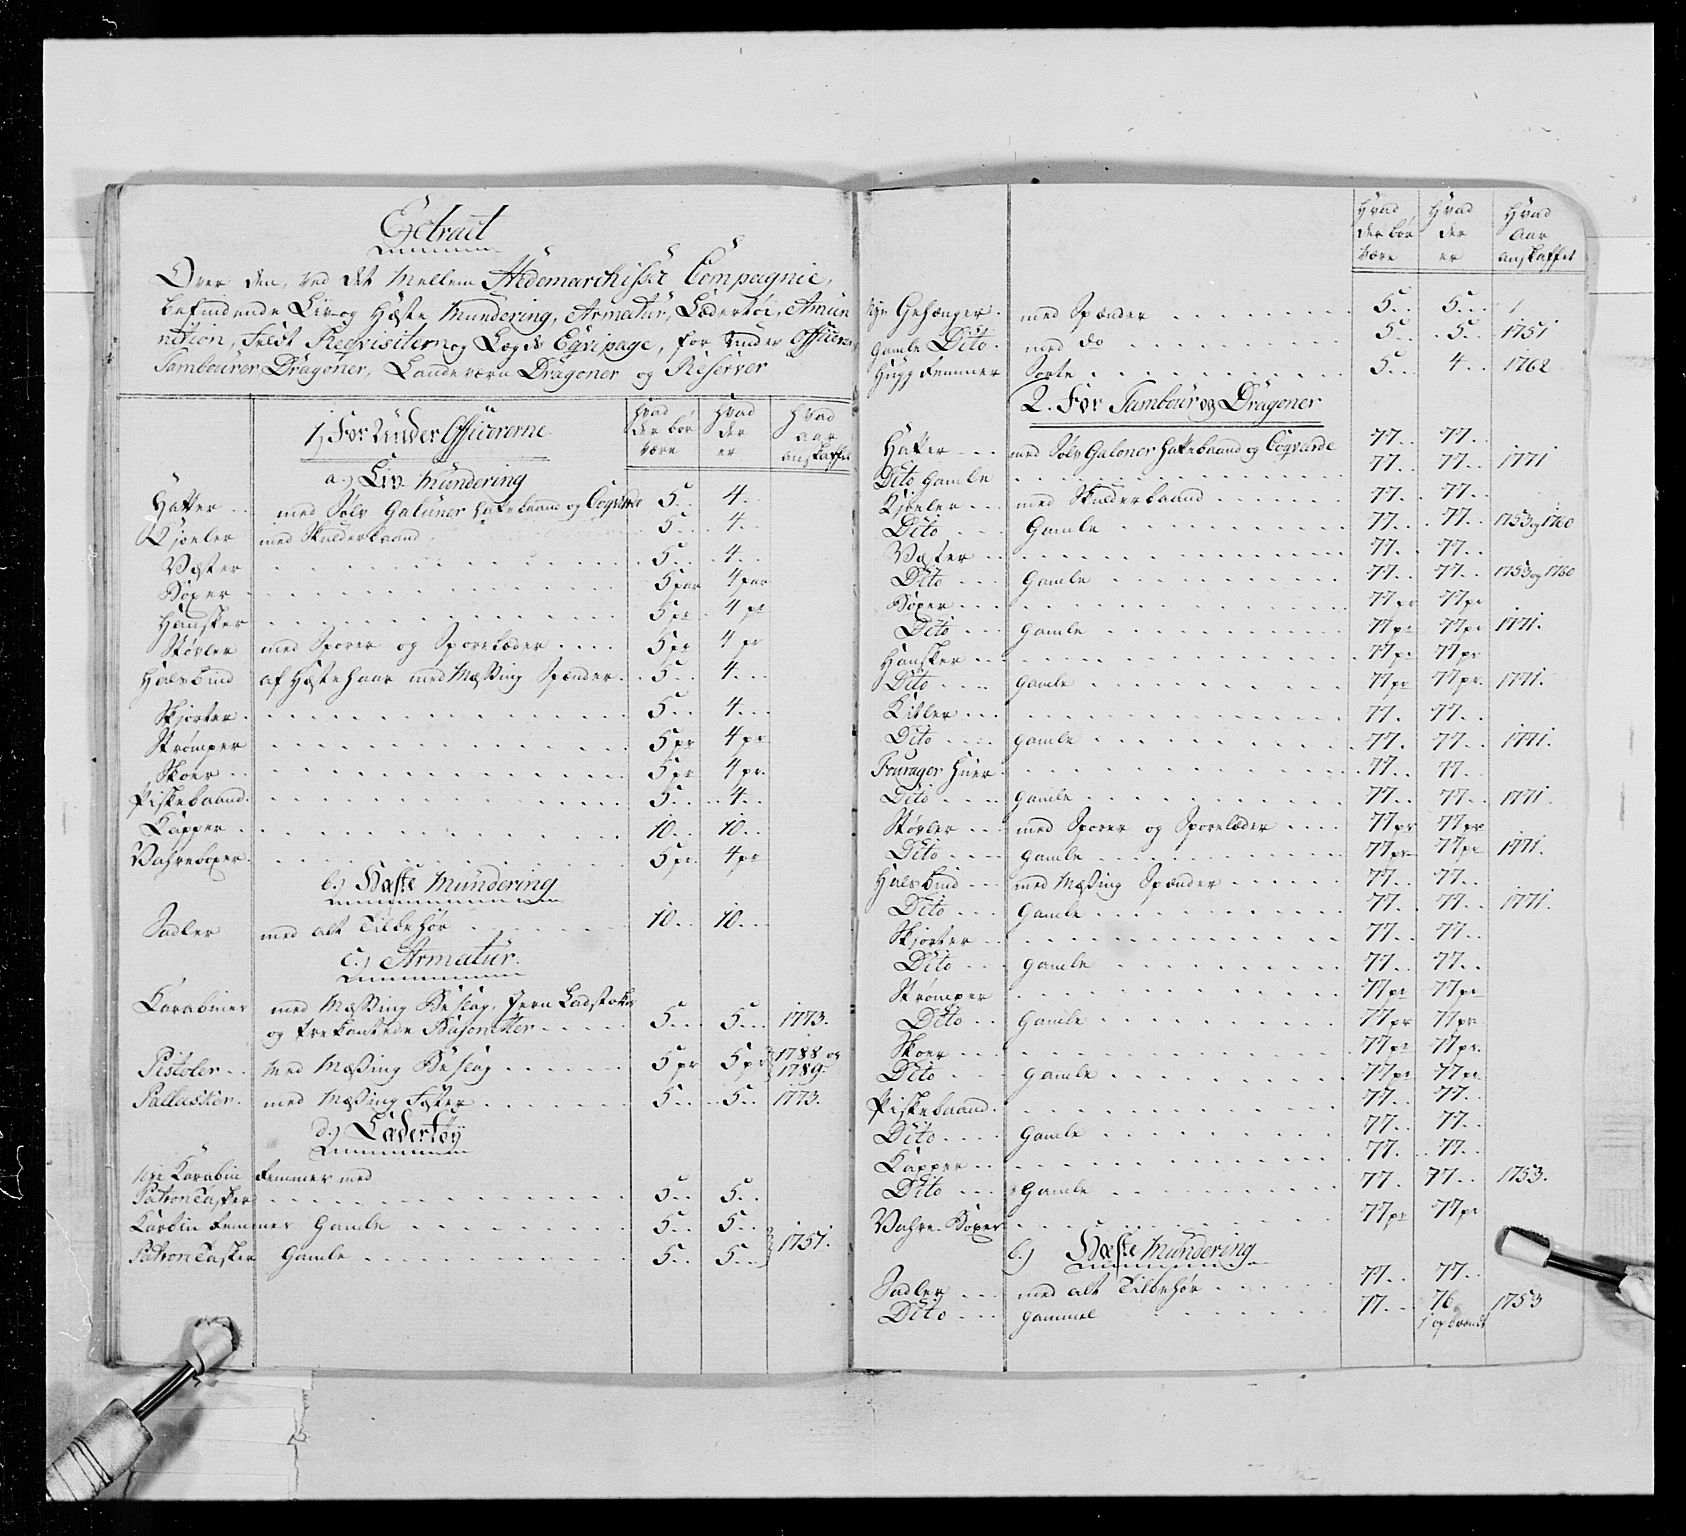 Extract
Over den, ved det Mellem Hedemarchisse Compagnie,
befindende Liv og Hæste Mundering, Armatur, Lædertöi, Amun
nition, Feldt Reqvisitern og Lægds Eqvipage, for Under Officerer
Tambourer Dragoner, Landeværn Dragoner og Reserver
1, For Under Officererne | Hvad der bør være | Hvad der er | Hvad aar anskaffet
a.) Liv Mundering
Hatter med Sølv Galuner Hattebaand og Coqvarde 5 4
Kjoler med Skulderbaand 5 4
Væster 5 4
Boxer 5 par 4 par
Handsker 5 pr 4 pr
Støvler med Sporer og Sporelæder 5 pr 4 pr
Halsbind af Hæstehaar med Messing Spænder 5 4
Skjorter 5 4
Strømper 5 pr 4 pr
Skoer 5 pr 4 pr
Piskebaand 5 4
Kapper 10 10
Vahreboxer 5 pr 4 pr
b.) Hæste Mundering
Sadler med alt Tilbehør 10 10
c.) Armatur.
Karabiner med Messing Beslag, Jern Ladstokker
og trekantede Bajonetter 5 5 1773.
Pistoler med Messing Beslag 5 pr 5 pr 1788 og 1789.
Pallasker med Messing Fæster 5 5 1773.
d.) Lædertøÿ
Nye Karabin Remmer med
Patron Tasker 5 5
Karbin Remmer Gamle 5 5
Patron Tasker Gamle 5 5 1751.
Hvad der bør være | Hvad der er | Hvad Aar anskaffet
Nye Gehænger med Spænder 5 5
Gamle Dito med do 5 5 1751
Hugg Remmer Sorte 5 4 1762
2. For Tambour og Dragoner
Hatter med Sølv Galoner Hattebaand og Coqvarde 77 77
Dito Gamle 77 77 1771
Kjoler med Skulderbaand 77 77
Dito Gamle 77 77 1753 og 1760
Væster 77 77
Dito Gamle 77 77 1753 og 1760
Boxer 77 pr 77 pr
Dito Gamle 77 pr 77 pr 1771.
Handsker 77 pr 77 pr
Dito Gamle 77 pr 77 pr 1771.
Kitler 77 77
Dito Gamle 77 77 1771.
Fourager Huer 77 77
Dito Gamle 77 77 1771.
Støvler med Sporer og Sporelæder 77 pr 77 pr
Dito Gamle 77 pr 77 pr 1771.
Halsbind med Messing Spænder 77 77
Dito Gamle 77 77 1771.
Skjorter 77 77
Dito Gamle 77 77
Strømper 77 pr 77 pr
Dito Gamle 77 pr 77 pr
Skoer 77 pr 77 pr
Dito Gamle 77 pr 77 pr
Piskebaand 77 77
Dito Gamle 77 77
Kapper 77 77
Dito Gamle 77 77 1753.
Vahre Boxer 77 pr 77 pr
b.) Hæste Mundering
Sadler med alt Tilbehør 77 77
Dito Gammel 77 76 1753
1 opbrændt